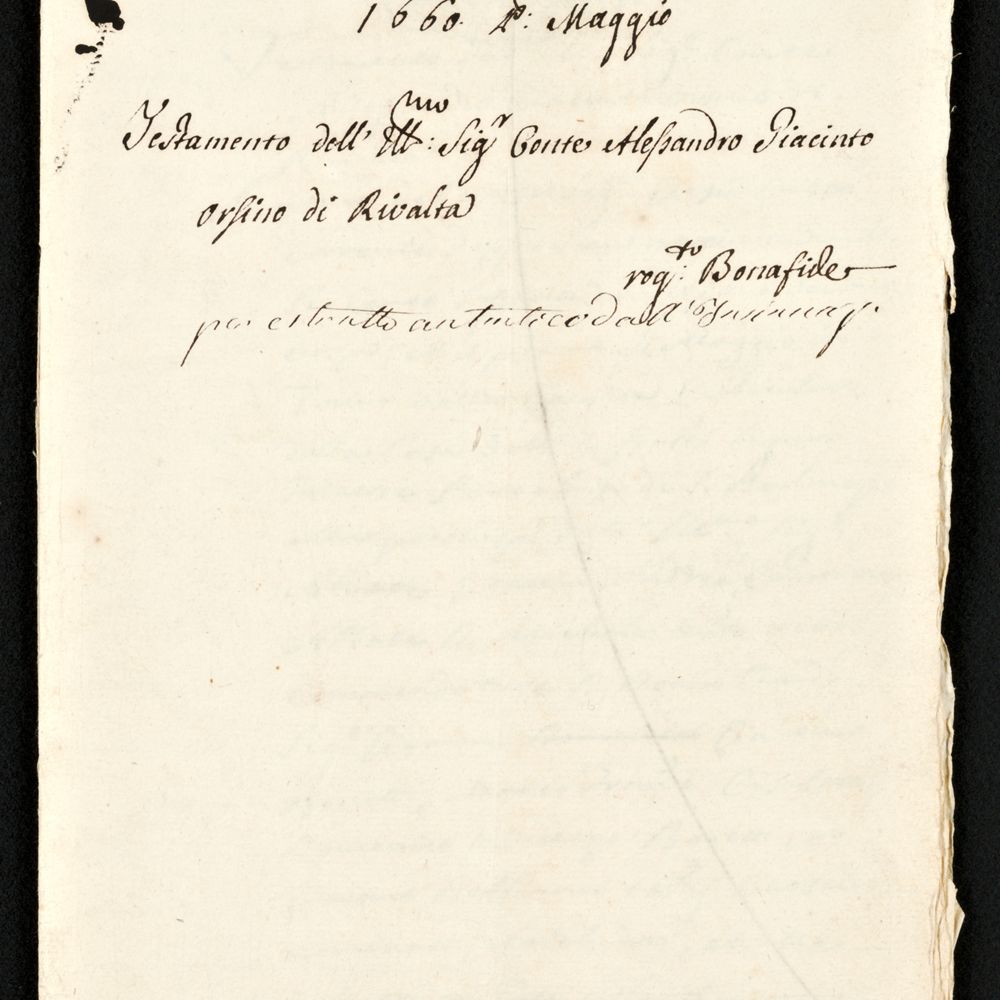 1660. P.º: Maggio
Testamento dell' Ill.mo: Sig.r Conte Alessandro Giacinto
Orsino di Rivalta
rog.to: Bonafide
per estratto autentico dall'